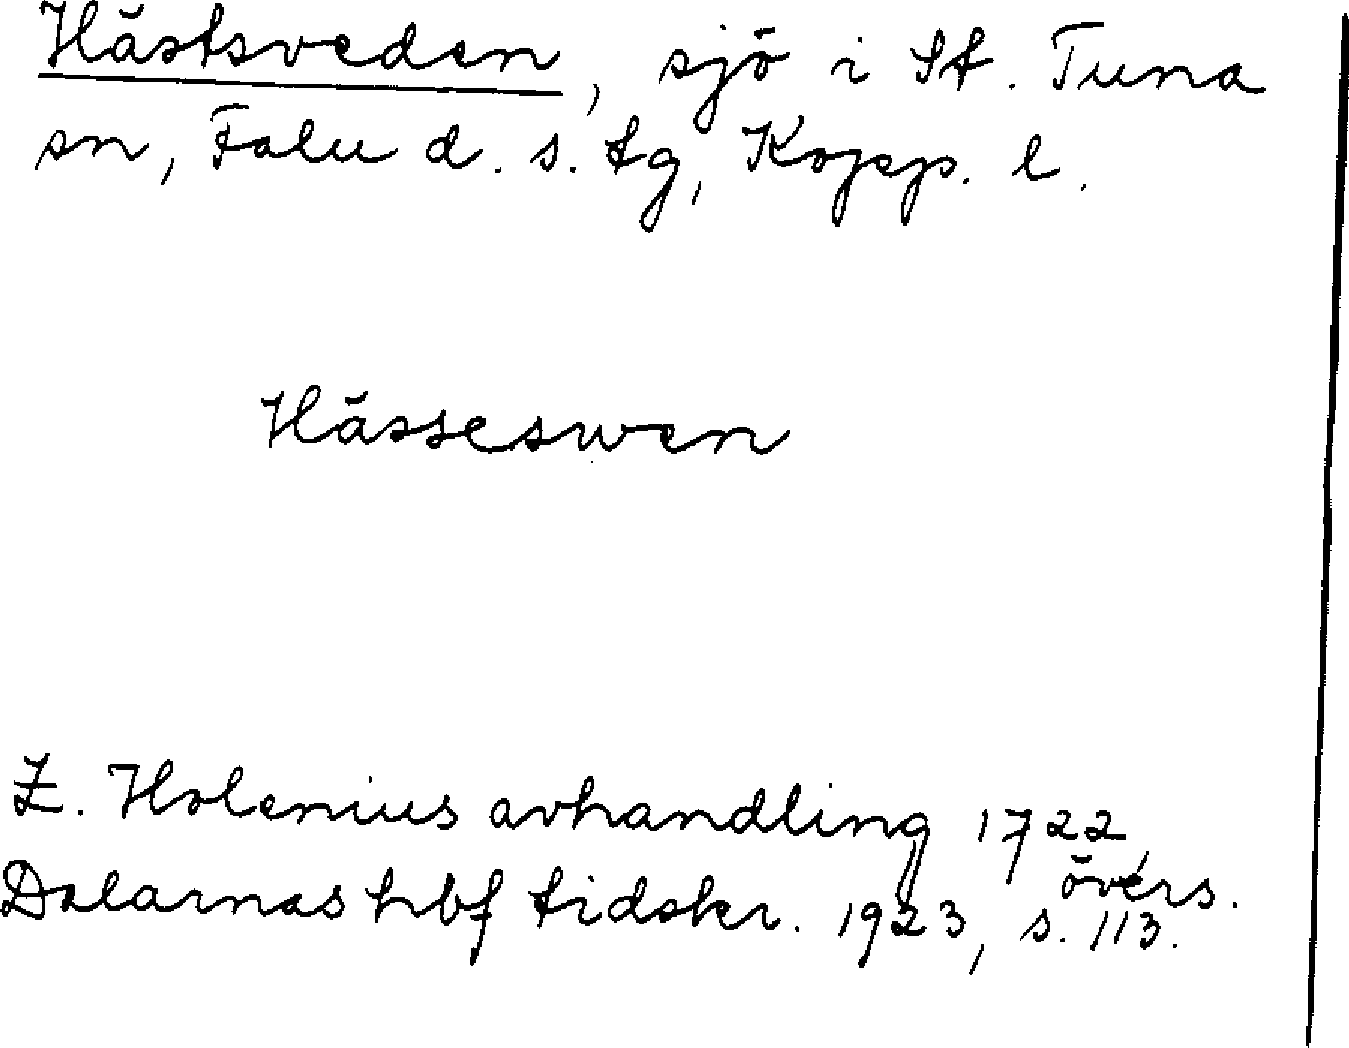 Hästsveden, sjö i St. Tuna
sn, Falu d. s. tg, Kopp. l.
Hässeswen
Z. Holenius avhandling 1722,
övers.
Dalarnas hbf tidskr. 1923, s. 113.